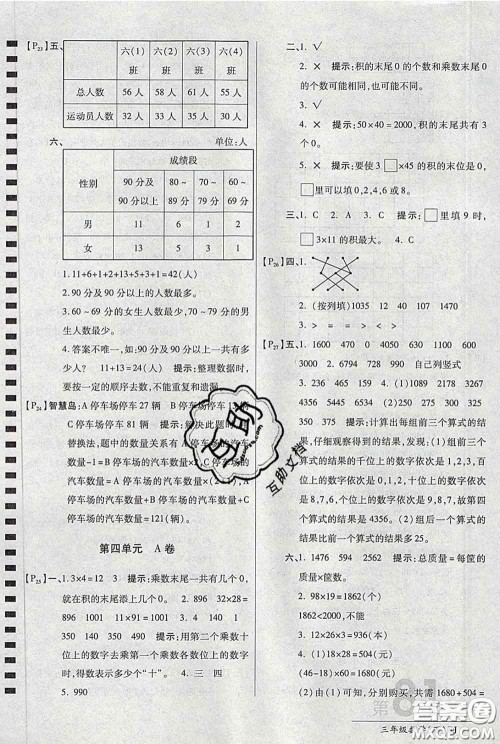 【P23】五、
六(1)班 六(2)班 六(3)班 六(4)班
总人数 56人 58人 61人 55人
运动员人数 32人 33人 35人 30人
六、 单位:人
性别 成绩段
90分及90分以上 80～89分 70～79分 60～69分
男 11 6 1 2
女 13 5 3 1
1. 11+6+1+2+13+5+3+1=42(人)
2. 90分及90分以上的人数最多。
3. 60～69分的女生人数最少,70～79分的男生人数最少。
4. 答案不唯一,如:90分及90分以上一共有多
少人? 11+13=24(人) 提示:整理数据时,
要按一定的顺序去数,不能重复和遗漏。
【P24】智慧岛:A停车场停车27辆 B停车场停车13
辆 C停车场停车81辆 提示:解决此题的
替换法,题中的数量关系有:A停车场的
汽车数量=B停车场的汽车数量×2,C停
车场的汽车数量=A停车场的汽车数量×3,A
停车场的汽车数量+B停车场的汽车数量+C
停车场的汽车数量=121(辆)。
第四单元 A卷
【P25】一、1. 3×4=12 3 提示:乘数末尾一共有几个
0,就在积的末尾添上几个0。 2. 896 32×28=
896 28×32=896 3. 1140 1 40
350 140 490 350 提示:用第二个乘数十
位上的数去乘第一个乘数各数位上的数字
时,得到的数表示多少个“十”。 4. 三 四
5. 990
二、1. √
2. × 提示:积的末尾0的个数和乘数末尾0的
个数可能相同,也可能不同。
3. √
4. × 提示:50×40=2000,积的末尾共有3
个0。
5. × 提示:要使3□×45的积的末位是0,□
里可以填0,2,4,6或8。
三、1. C 2. A 3. C 提示:□里填9时,
□3×11的积最大。 4. C
【P26】四、1.
2. (按列填)1035 12 40 1470
3. > = = < > >
【P27】五、1. 1050 4000 720 2000 2400 0
3100 1000
2. 2646 950 728 2236 自己列竖式
3. 646 3825 1344 4. (1)1089 2178
3267 4356 提示:计算出每组前三个算式的
结果,仔细观察得到的结果,千位上的数字依次
是1,2,3,百位上的数字依次是0,1,2,十位上
的数字依次是8,7,6,个位上的数字依次是
9,8,7,所以第四个算式的结果千位、百位、十
位、个位上的数字依次是4,3,5,6,由此可得第四
个算式的结果是4356。 (2)后一个算式的
结果比前一个算式的结果多25。
六、1. 1476 2592 564 提示:总质量=每筐的
质量×筐数。
2. 98×19=1862(个)
1862<2000,不够。
3. 12×26×3=936(本)
4. (1)18×28=504(元)
(46-18)×60=1680(元)
(2)由(1)可知,分别购买,购票共需1680+504=
互助
互助文档
第81
三年级数学(下)
答案圈
MXQE.COM